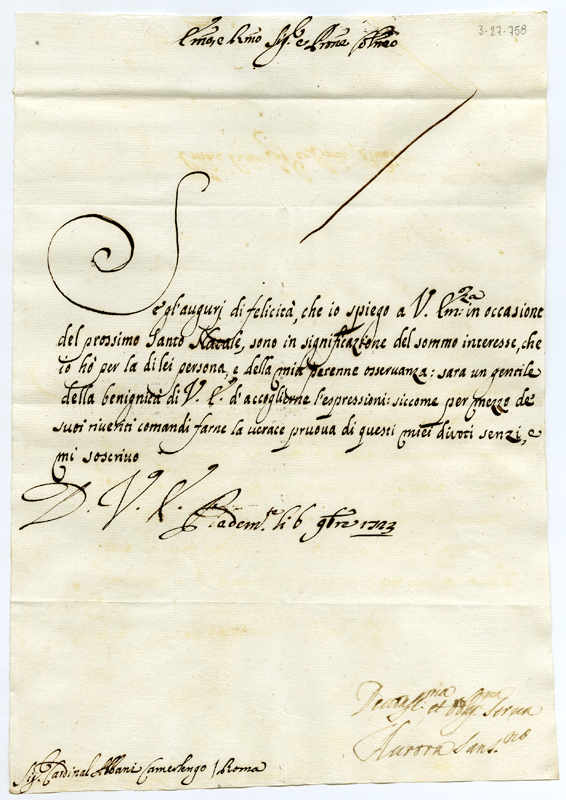 Emo, e Rmo Sig.re e Prone Colmo
3-27-758
Se gl'augurj di felicità, che io spiego a V. Em.za in occasione
del prossimo Santo Natale, sono in significazione del sommo interesse, che
io hò per la di lei persona, e della mia perenne osservanza: sarà un gentile
della benignità di V. E. d'accoglierne l'espressioni: siccome per mezzo de
suoi riveriti comandi farne la verace pruova di questi miei divoti senzi, e
mi soscrivo
D. V. E. li 6 9bre 1723
et Serva
Aurora Sans.no
Sig. Cardinal Albani Camerlengo / Roma